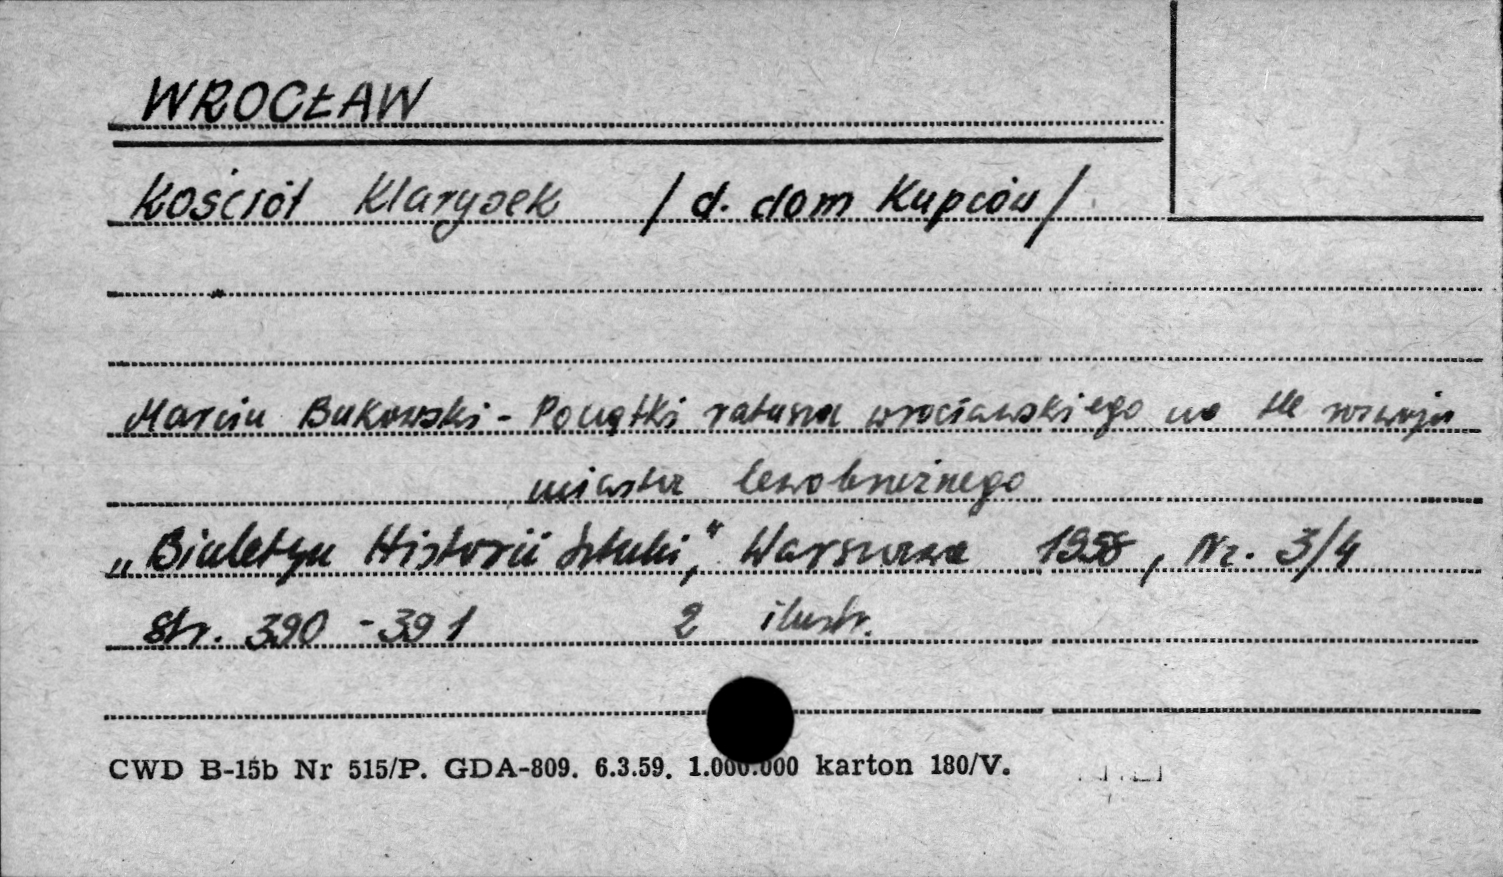 WROCŁAW
Kościół Klarysek /d. dom Kupców/
Marcin Bukowski - Początki ratusza wrocławskiego na tle rozwoju
miasta lewobrzeżnego
„Biuletyn Historii Sztuki," Warszawa 1958, Nr. 3/4
str. 390 - 391 2 ilustr.
CWD B-15b Nr 515/P. GDA-809. 6.3.59. 1.000.000 karton 180/V.